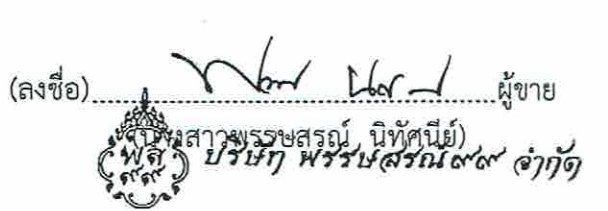 (ลงชื่อ)........................ผู้ขาย
(นางสาวพรรษสรณ์ นิทัศนีย์)
พส ๙๙ บริษัท พรรษสรณ์๙๙ จำกัด